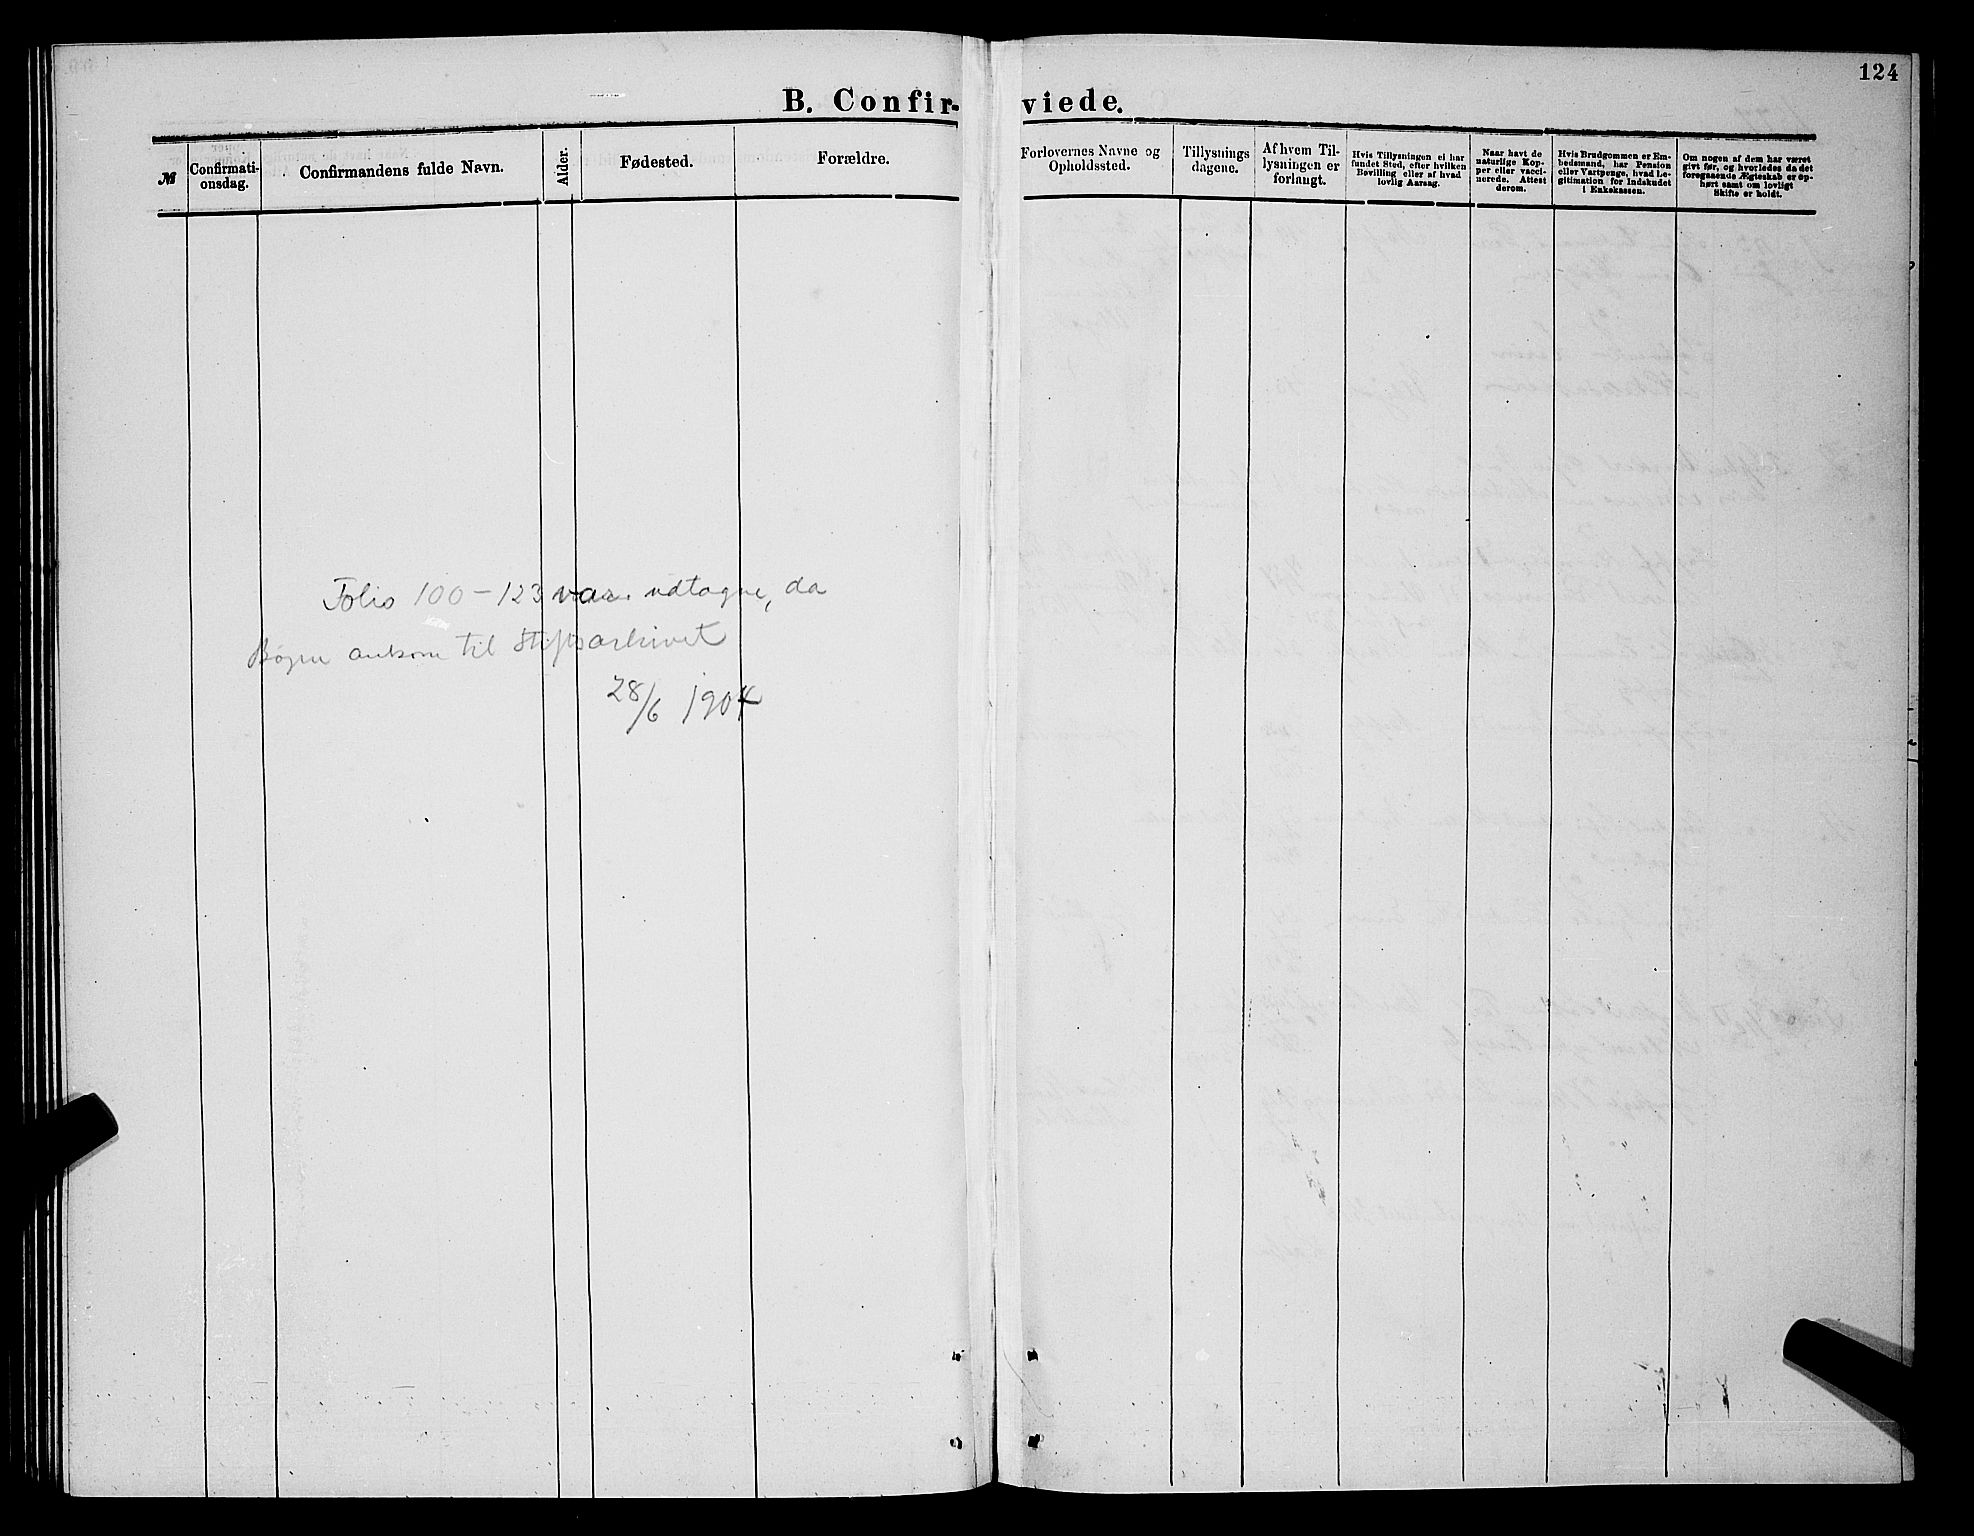 124
B. Confir-
viede.
№
Confirmati-
onsdag.
Confirmandens fulde Navn.
Alder.
Fødested.
Forældre.
Forlovernes Navne og
Opholdssted.
Tillysnings
dagene.
Af hvem Til-
lysningen er
forlangt.
Hvis Tillysningen ei har
fundet Sted, efter hvilken
Bevilling eller af hvad
lovlig Aarsag.
Naar havt de
naturlige Kop-
per eller vacci-
nerede. Attest
derom.
Hvis Brudgommen er Em-
bedsmand, har Pension
eller Vartpenge, hvad Le-
gitimation for Indskudet
i Enkekassen.
Om nogen af dem har været
givt før, og hvorledes da det
foregaaende Ægteskab er op-
hørt samt om lovligt
Skifte er holdt.
Folio 100-123 var udtagne, da
Bogen ankom til Stiftsarkivet
28/6 1904